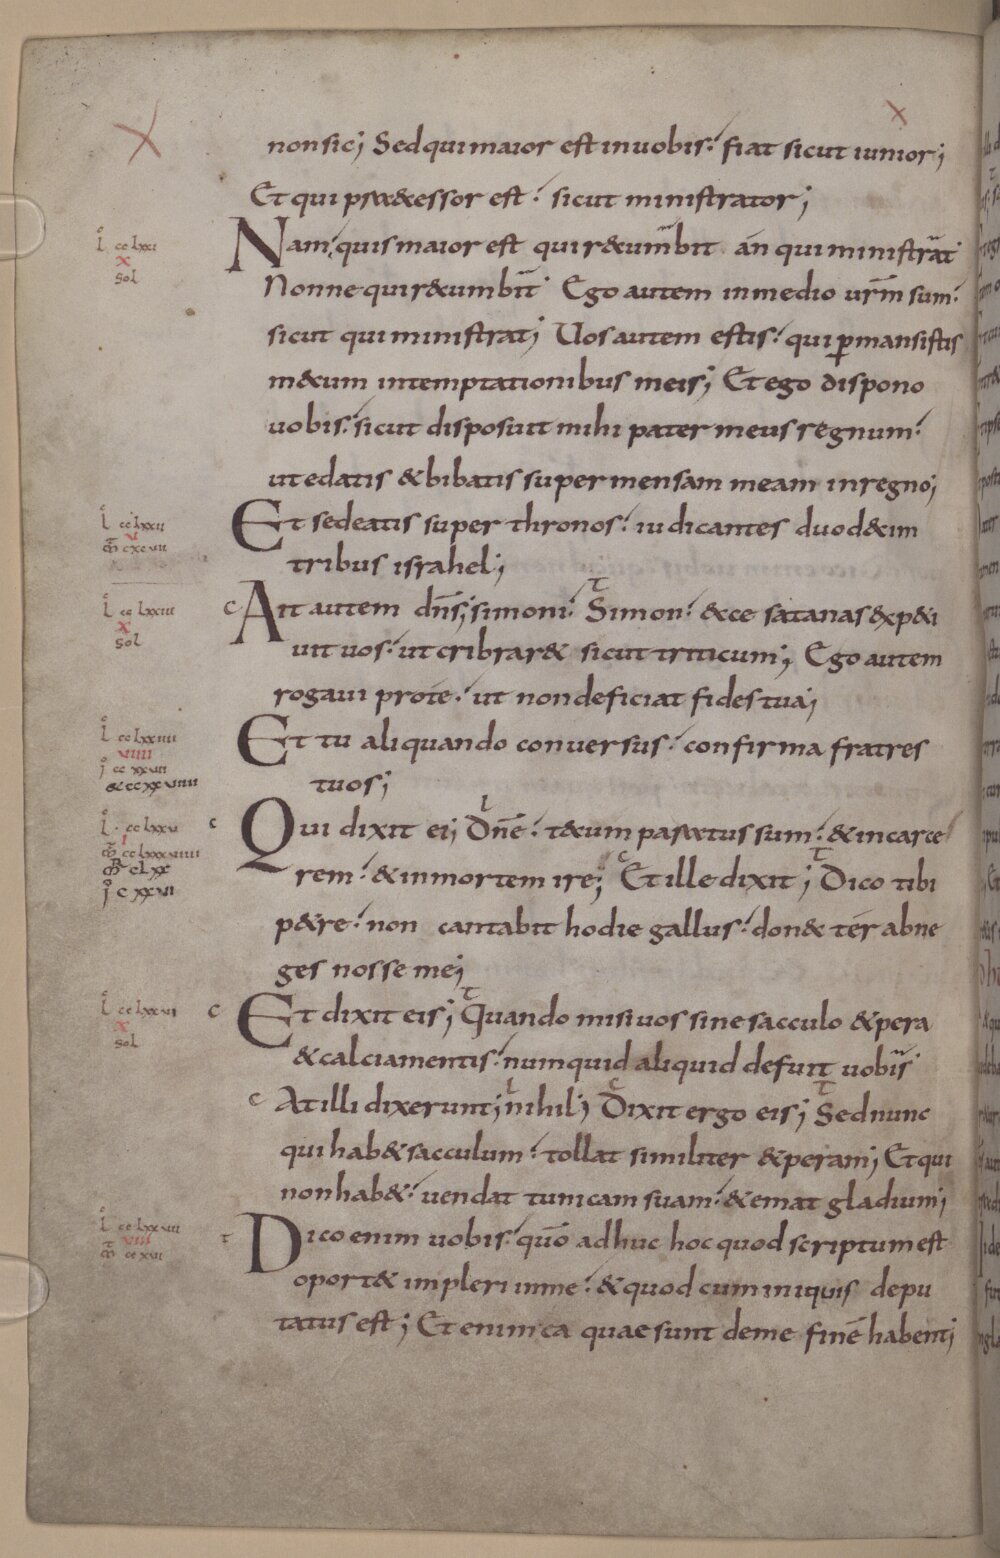 non sic; Sed qui maior est in uobis: fiat sicut iunior;
Et qui prędecessor est: sicut ministrator;
L cc lxxi
X
sol
Nam quis maior est qui recumbit an qui ministrat
Nonne qui recumbit Ego autem in medio urm̄ sum:
sicut qui ministrat; Uos autem estis: qui ꝑmansistis
m&cum in temptationibus meis; Et ego dispono
uobis: sicut disposuit mihi pater meus regnum:
ut edatis & bibatis super mensam meam in regno;
L cc lxxii
V
M̄ cxcvii
Et sedeatis super thronos: iudicantes duod&im
tribus israhel;
L cc lxxiii
X
sol
c Ait autem dn̄s; simoni: Simon: &ce satanas &xp&i
uit uos: ut cribrar& sicut triticum; Ego autem
rogaui pro te: ut non deficiat fides tua;
L cc lxxiiii
VIIII
I cc xxvii
& cc xxviiii
Et tu aliquando conuersus: confirma fratres
tuos;
L cc lxxv
I
M̄ cc lxxxviiii
MR clxx
I c xxvi
c Qui dixit ei; Dn̄e: t&cum paratus sum: & in carce
rem: & in mortem ire; Et ille dixit; Dico tibi
p&re: non cantabit hodie gallus: don& ter abne
ges nosse me;
L cc lxxvi
X
sol
c Et dixit eis; Quando misi uos sine sacculo & pera
& calciamentis: numquid aliquid defuit uobis
c At illi dixerunt; nihil; Dixit ergo eis; Sed nunc
qui hab& sacculum: tollat similiter & peram; Et qui
non hab&: uendat tunicam suam: & emat gladium;
L cc lxxvii
VIII
M̄ cc xvi
t Dico enim uobis: quō adhuc hoc quod scriptum est
oport& impleri in me: & quod cum iniquis depu
tatus est; Et enim ea quae sunt de me finē habent;